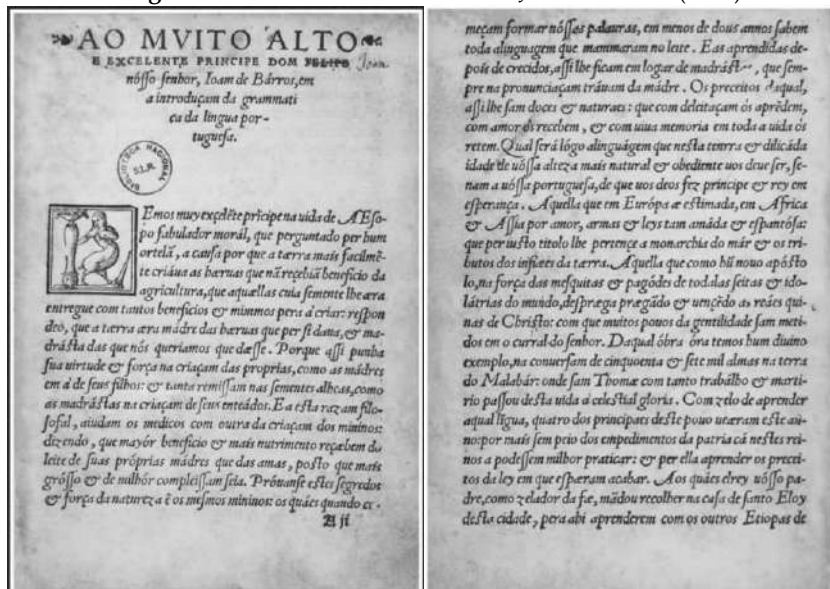 AO MVITO ALTO
E EXCELENTE PRINCIPE DOM FELIPO Joan
nósso senhor, Ioam de Bárros, em
a introduçam da grammati
ca da lingua por-
tuguesa.
BIBLIOTECA NACIONAL
S.L.R.
Emos muy exçelẽte prĩcipe na uida de AEso-
po fabulador morál, que perguntado per hum
ortelã, a causa por que a tærra mais facilmẽ-
te criáua as hæruas que nã reçebiã benefiçio da
agricultura, que aquællas cuia semente lhe æra
entregue com tantos benefiçios & mimmos pera á criar: respon
deo, que a tærra æra mádre das hæruas que per si daua, & ma-
drásta das que nós queriamos que dæsse. Porque assi punha
sua uirtude & força na criaçam das proprias, como as mádres
em a de seus filhos: & tanta remissam nas sementes alheas, como
as madrástas na criaçam de seus enteádos. E a esta razam filo-
sofal, aiudam os medicos com outra da criaçam dos mininos:
dizendo, que mayór benefiçio & mais nutrimento reçæbem do
leite de suas próprias mádres que das amas, posto que mais
grósso & de milhór compleissam seia. Próuanse estes segredos
& força da natureza ẽ os mesmos mininos: os quáes quando co-
A ij
meçam formar nóssas palauras, em menos de dous annos sabem
toda alinguagem que mammaram no leite. E as aprendidas de-
pois de crecidos, assi lhe ficam em logar de madrásta, que sem-
pre na pronunciaçam tráuam da mádre. Os preceitos daqual,
assi lhe sam doces & naturaes: que com deleitaçam ós aprẽdem,
com amor ós recebem, & com uiua memoria em toda a uida ós
retem. Qual será lógo alinguágem que nesta tenrra & dilicáda
idade de uóssa alteza mais natural & obediente uos deue ser, se-
nam a uóssa portuguesa, de que uos deos fez principe & rey em
esperança. Aquella que em Európa æ estimada, em Africa
& Assia por amor, armas & leys tam amáda & espantósa:
que per iusto titolo lhe pertençe a monarchia do már & os tri-
butos dos infiæes da tærra. Aquella que como hũ nouo apósto
lo, na força das mesquitas & pagódes de todalas seitas & ido-
látrias do mundo, despræga prægãdo & uençẽdo as reáes qui-
nas de Christo: com que muitos pouos da gentilidade sam meti-
dos em o curral do senhor. Daqual óbra óra temos hum diuino
exemplo, na conuersam de cinquoenta & sete mil almas na terra
do Malabár: onde sam Thomæ com tanto trabálho & marti-
rio passou desta uida á celestial gloria. Com zelo de aprender
aqual lĩgua, quatro dos principaes deste pouo ueæram este an-
no: por mais sem peio dos empedimentos da patria cá nestes rei-
nos a podessem milhor praticar: & per ella aprender os precei-
tos da ley em que espæram acabar. Aos quáes elrey uósso pa-
dre, como zelador da fæ, mãdou recolher na casa de santo Eloy
desta cidade, pera ahi aprenderem com os outros Etiopas de